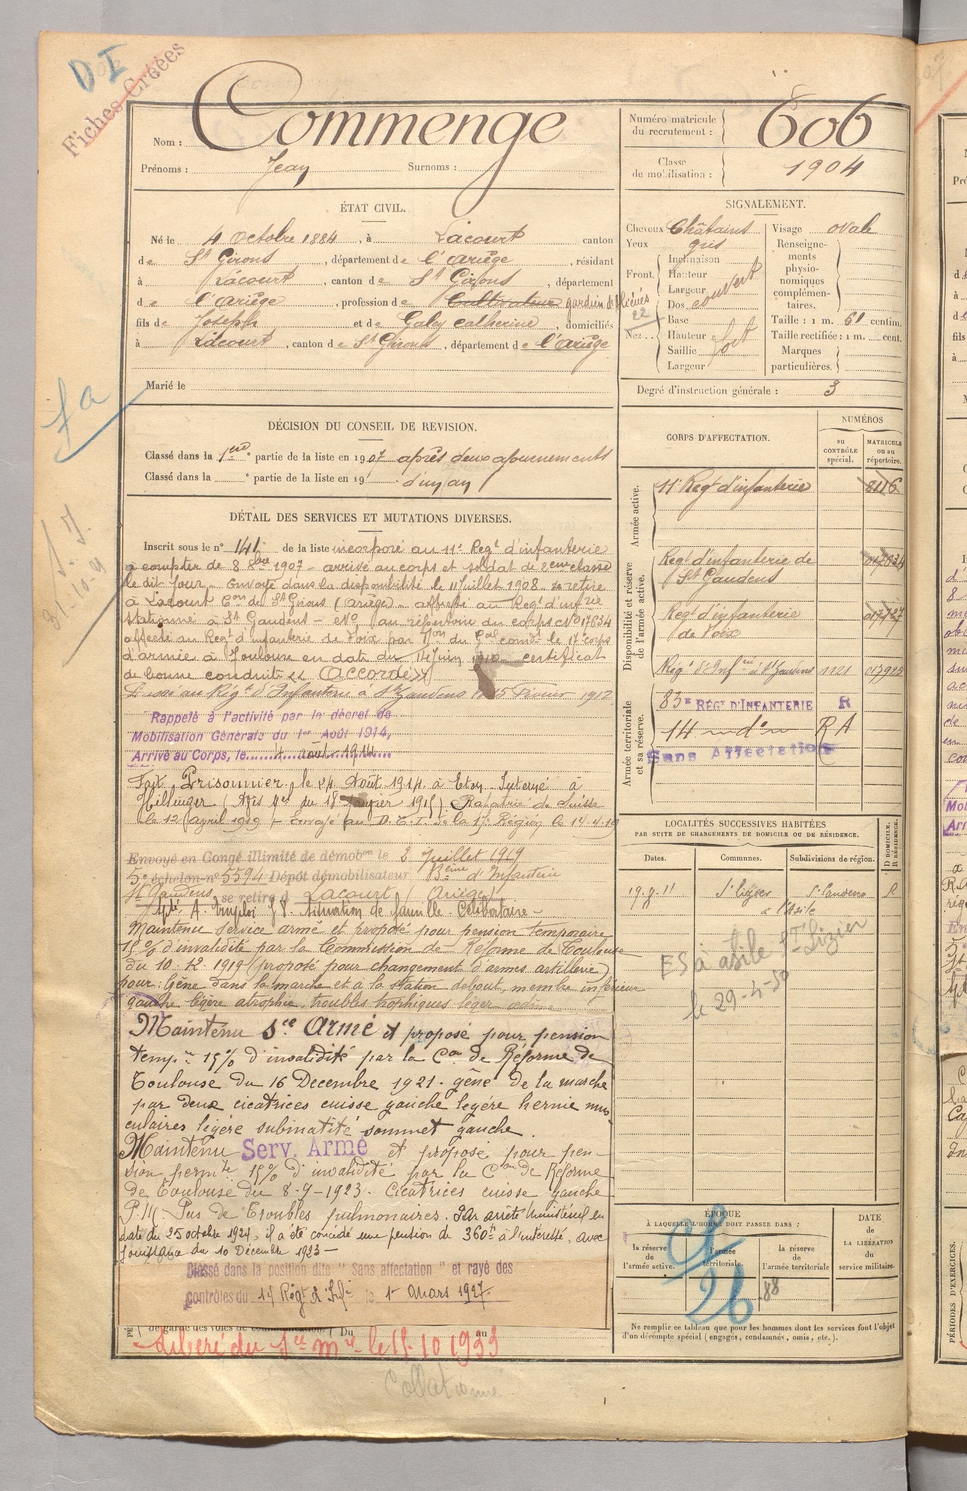 D I
Fiches Créées
Nom : Commenge
Prénoms : Jean Surnoms :
Numéro matricule du recrutement : 606
Classe de mobilisation : 1904
ÉTAT CIVIL.
Né le 4 Octobre 1884, à Lacourt canton
de St Girons, département de l'Ariège, résidant
à Lacourt, canton de St Girons, département
de l'Ariège, profession de Cultivateur gardien d'aliénés
fils de Joseph et de Galey Catherine, domiciliés
à Lacourt, canton de St Girons, département de l'Ariège
Marié le
SIGNALEMENT.
Cheveux Châtains
Yeux gris
Front. Inclinaison
Hauteur
Largeur
couvert
Nez. Dos
Base
Hauteur
Saillie
Largeur
fort
22
Visage ovale
Renseignements physionomiques complémentaires.
Taille : 1 m. 61 centim.
Taille rectifiée : 1 m. cent.
Marques particulières.
Degré d'instruction générale : 3
DÉCISION DU CONSEIL DE REVISION.
Classé dans la 1re partie de la liste en 1907 après deux ajournements
Classé dans la partie de la liste en 19 d'un an
DÉTAIL DES SERVICES ET MUTATIONS DIVERSES.
Inscrit sous le n° 141 de la liste incorporé au 11e Regt d'infanterie
à compter du 8 8bre 1907 – arrivé au corps et soldat de 2eme classe
le dit jour – Envoyé dans la disponibilité le 11 juillet 1908 – se retire
à Lacourt Con de St Girons (Ariège) – affecté au Regt d'infrie
stationné à St Gaudens – No au répertoire du corps No 17034
affecté au Regt d'Infanterie de Foix par Don du Gal comdt le 17e corps
d'armée à Toulouse en date du 14 juin 1910 – certificat
de bonne conduite « Accordé »
Passé au Régt d'Infanterie à St Gaudens le 15 Février 1912
Rappelé à l'activité par le décret de
Mobilisation Générale du 1er Août 1914,
Arrivé au Corps, le 4 août 1914
Fait Prisonnier le 24 Août 1914 à Eton Interné à
(Avis du 18 février 1915) Rapatrié de Suisse
le 12 Avril 1919
Envoyé en Congé illimité de démobon le 2 Juillet 1919
5e échelon n° 5594 Dépôt démobilisateur 18eme d'Infanterie
St Gaudens se retire à Lacourt (Ariège)
situation de famille Célibataire –
Maintenu service armé et proposé pour pension temporaire
15 % d'invalidité par la Commission de Réforme de Toulouse
du 10.12.1919 (proposé pour changement d'armes artillerie)
pour : Gêne dans la marche et à la station debout, membre inférieur
gauche légère atrophie, troubles trophiques léger œdème
Maintenu Sce Armé et proposé pour pension
tempre 15% d'invalidité par la Con de Réforme de
Toulouse du 16 Decembre 1921. gêne de la marche
par deux cicatrices cuisse gauche legère hernie mus
culaires légère submatité sommet gauche.
Maintenu Serv. Armé et proposé pour pen-
sion permte 15% d'invalidité par la Con de Réforme
de Toulouse du 8-9-1923. Cicatrices cuisse gauche
Pas de troubles pulmonaires. Par arrêté Ministériel en
date du 25 octobre 1924, il a été concédé une pension de 360f à l'interessé, avec
Jouissance du 10 Décembre 1923 –
Classé dans la position dite "Sans affectation" et rayé des
contrôles du 14 Régt d'Infie le 1er Mars 1927.
Libéré du Sce Mre le 15.10.1933
Collationné
CORPS D'AFFECTATION.
NUMÉROS
au contrôle spécial.
MATRICULE ou au répertoire.
Armée active.
11e Regt d'infanterie 8116
Disponibilité et réserve de l'armée active.
Regt d'infanterie de St Gaudens 017034
Regt d'infanterie de Foix 017727
Regt d'Infrie à St Gaudens 1121 013925
Armée territoriale et sa réserve.
83E RÉGT D'INFANTERIE R
14 – do – RA
Sans Affectation
LOCALITÉS SUCCESSIVES HABITÉES
PAR SUITE DE CHANGEMENTS DE DOMICILE OU DE RÉSIDENCE.
Dates. Communes. Subdivisions de région. D DOMICILE. R RÉSIDENCE.
St Lizier St Gaudens R
à l'Asile
ES à asile St Lizier
le 29-4-30
ÉPOQUE
À LAQUELLE L'HOMME DOIT PASSER DANS :
la réserve de l'armée active.
l'armée territoriale.
la réserve de l'armée territoriale
DATE de LA LIBÉRATION du service militaire.
26
88
Ne remplir ce tableau que pour les hommes dont les services font l'objet
d'un décompte spécial (engagés, condamnés, omis, etc.).
PÉRIODES D'EXERCICES.